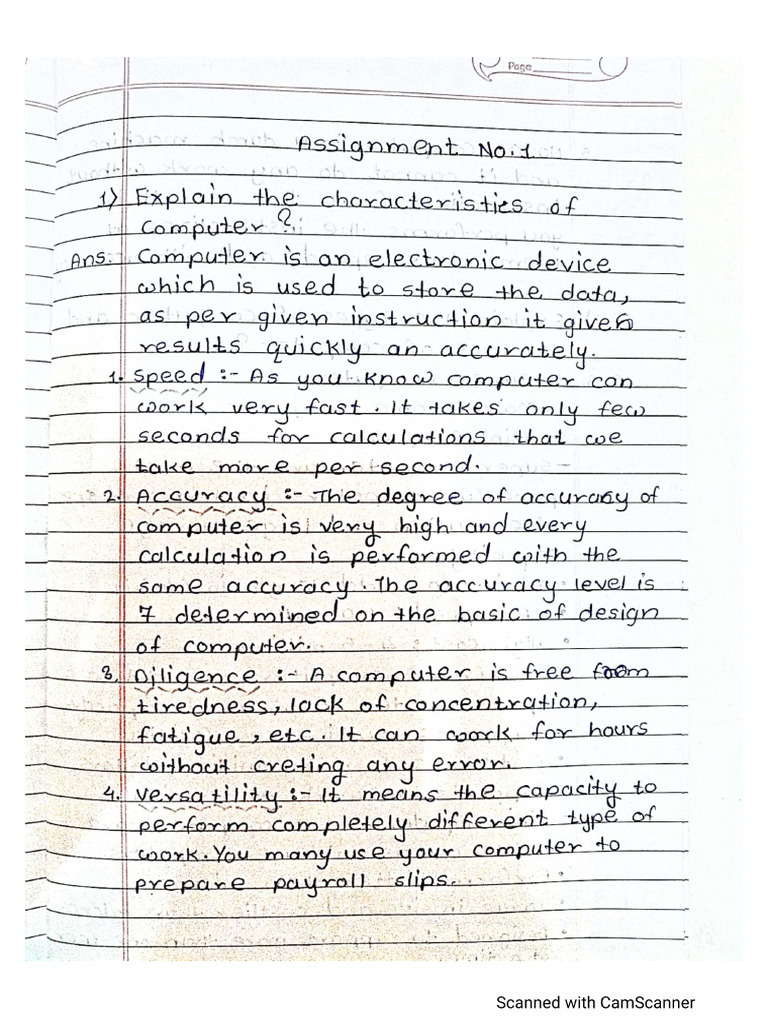 Page
Assignment No.1
1) Explain the characteristics of
computer?
Ans: Computer is an electronic device
which is used to store the data,
as per given instruction it gives
results quickly an accurately.
1. Speed :- As you know computer can
work very fast. It takes only few
seconds for calculations that we
take more per second.
2. Accuracy :- The degree of accuracy of
computer is very high and every
calculation is performed with the
same accuracy. The accuracy level is
7 determined on the basic of design
of computer.
3. Diligence :- A computer is free from
tiredness, lack of concentration,
fatigue, etc. It can work for hours
without creting any error.
4. Versatility :- It means the capacity to
perform completely different type of
work. You many use your computer to
prepare payroll slips.
Scanned with CamScanner